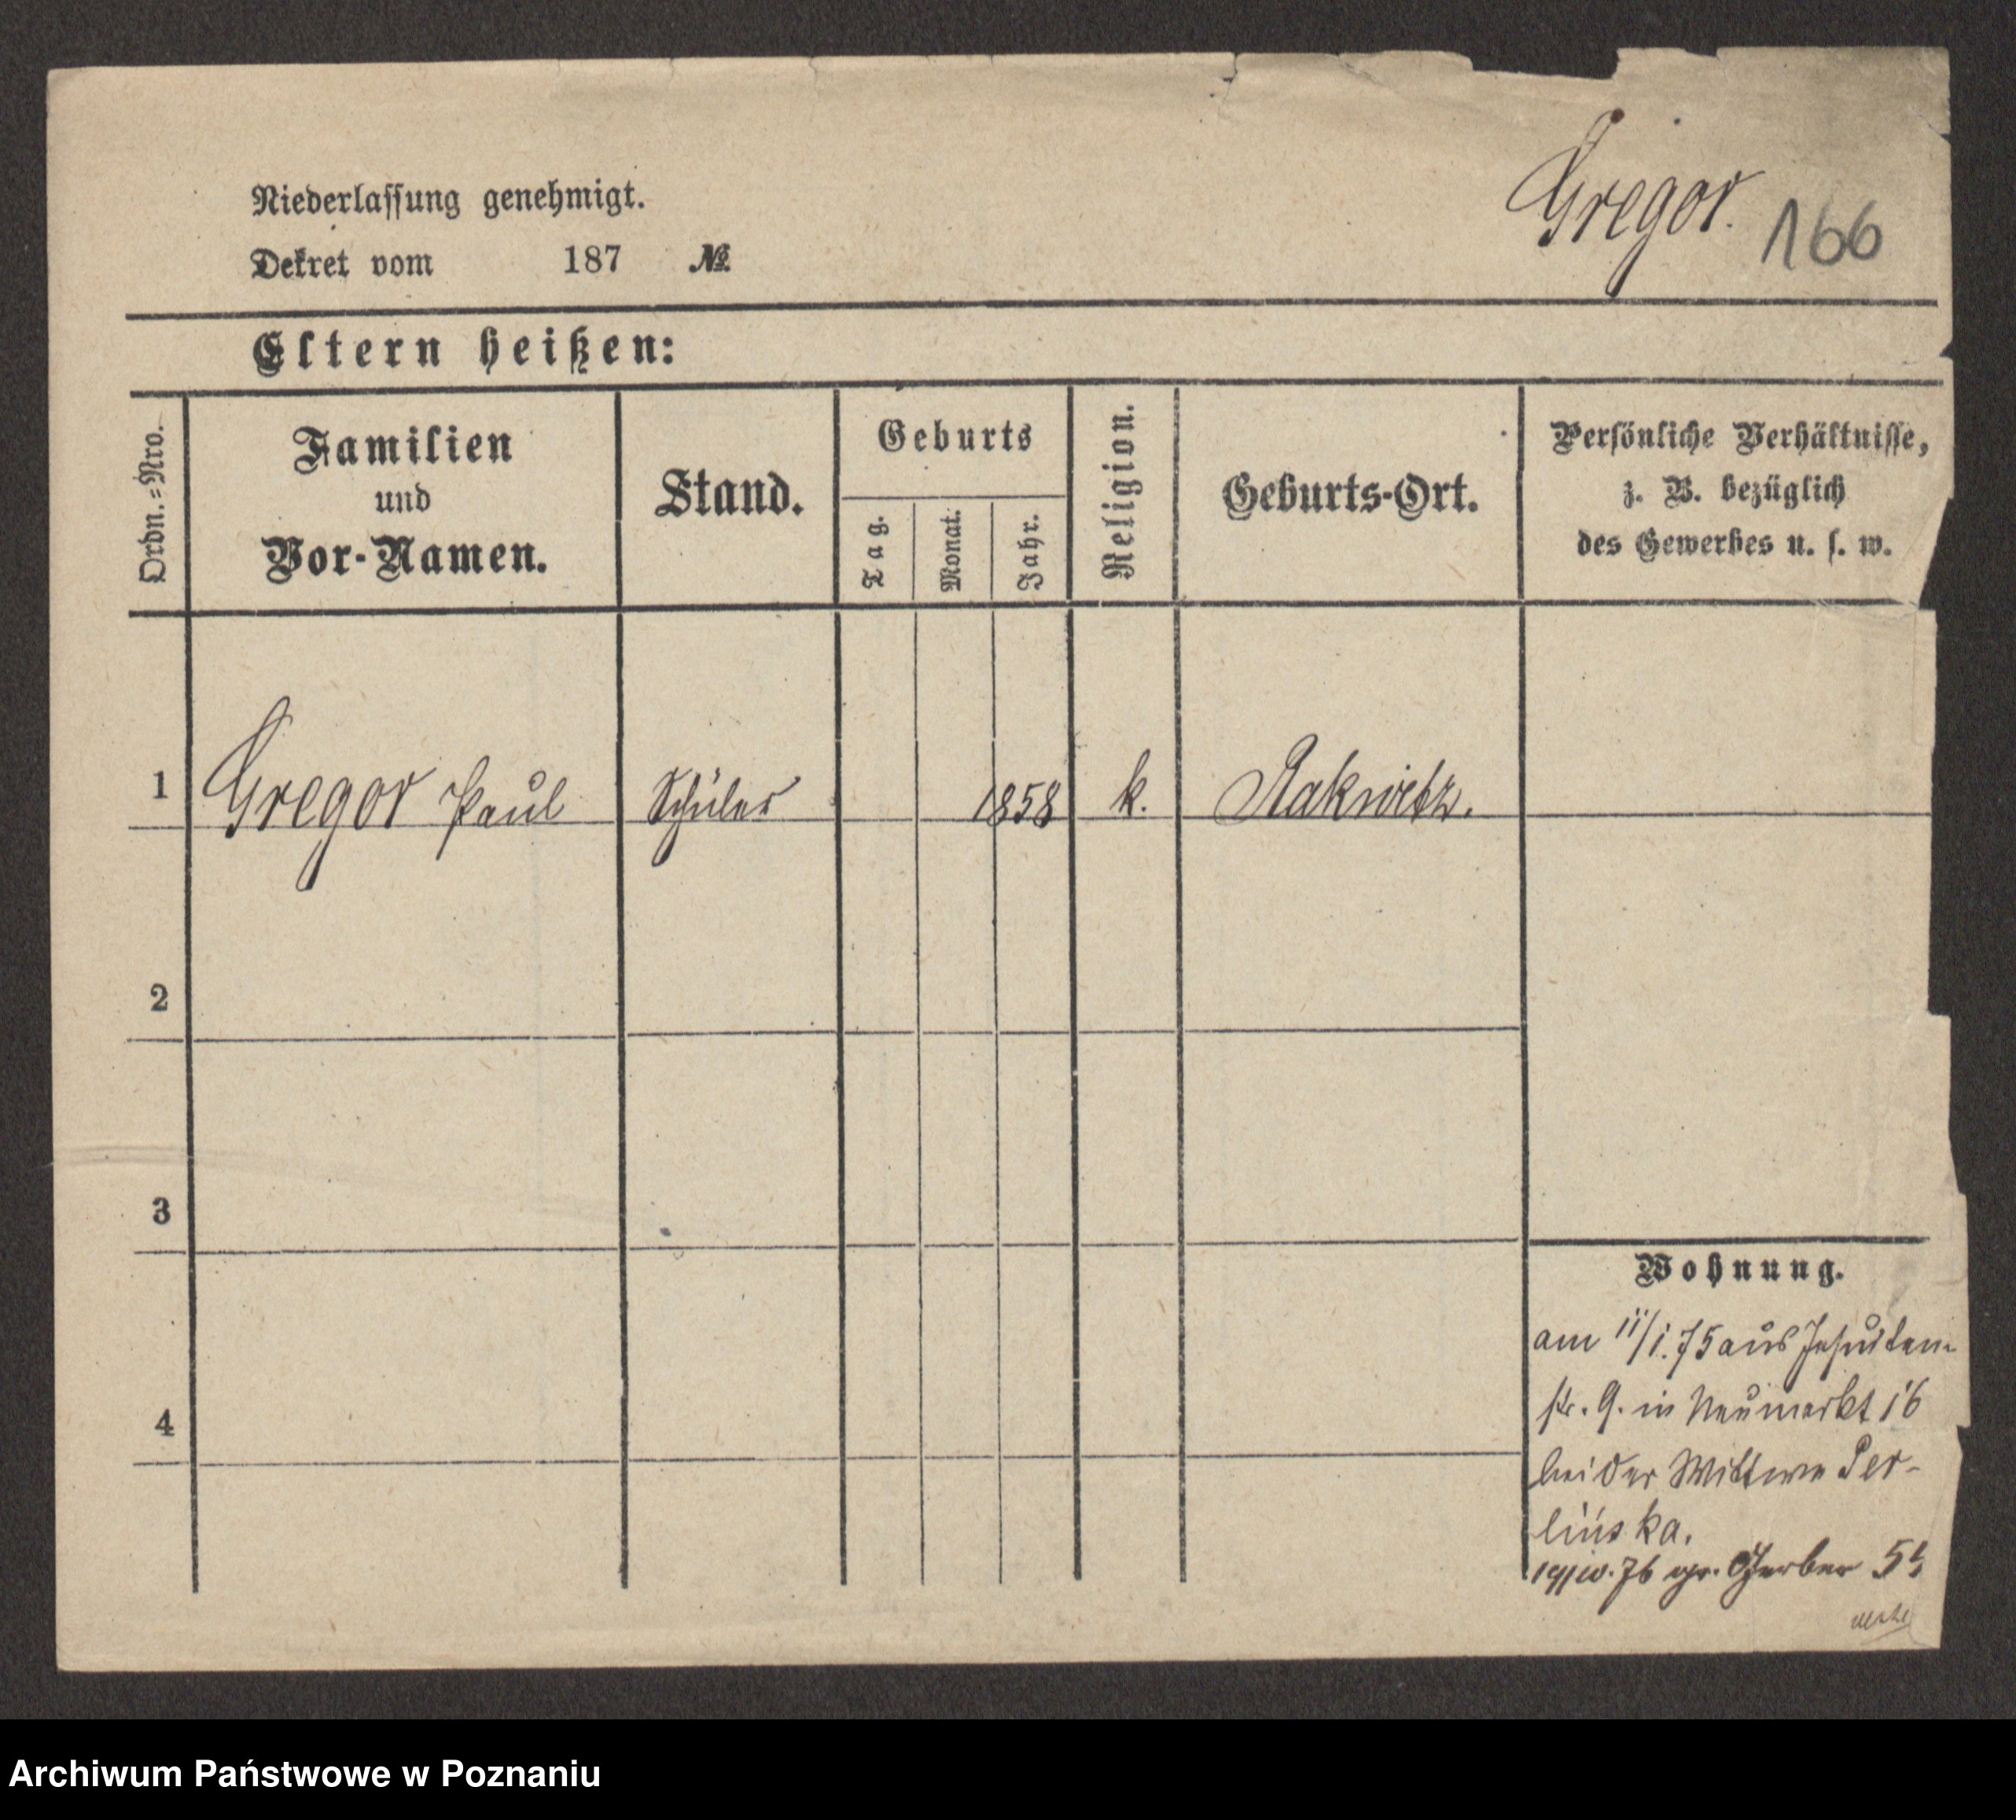 Gregor. 166
Niederlassung genehmigt.
Dekret vom 187 №
Eltern heißen:
Ordn.=Nro.
Familien
und
Vor-Namen.
Stand.
Geburts
Tag.
Monat.
Jahr.
Religion.
Geburts-Ort.
Persönliche Verhältnisse,
z. B. bezüglich
des Gewerbes u. s. w.
1 Gregor Paul Schüler 1858 k. Rakwitz.
2
3
4
Wohnung.
am 11/1. 75 aus Jesuiten-
str. 9. in Neumarkt 16
bei der Wittwe Per-
lińska.
76 gr. Gerber
Archiwum Państwowe w Poznaniu